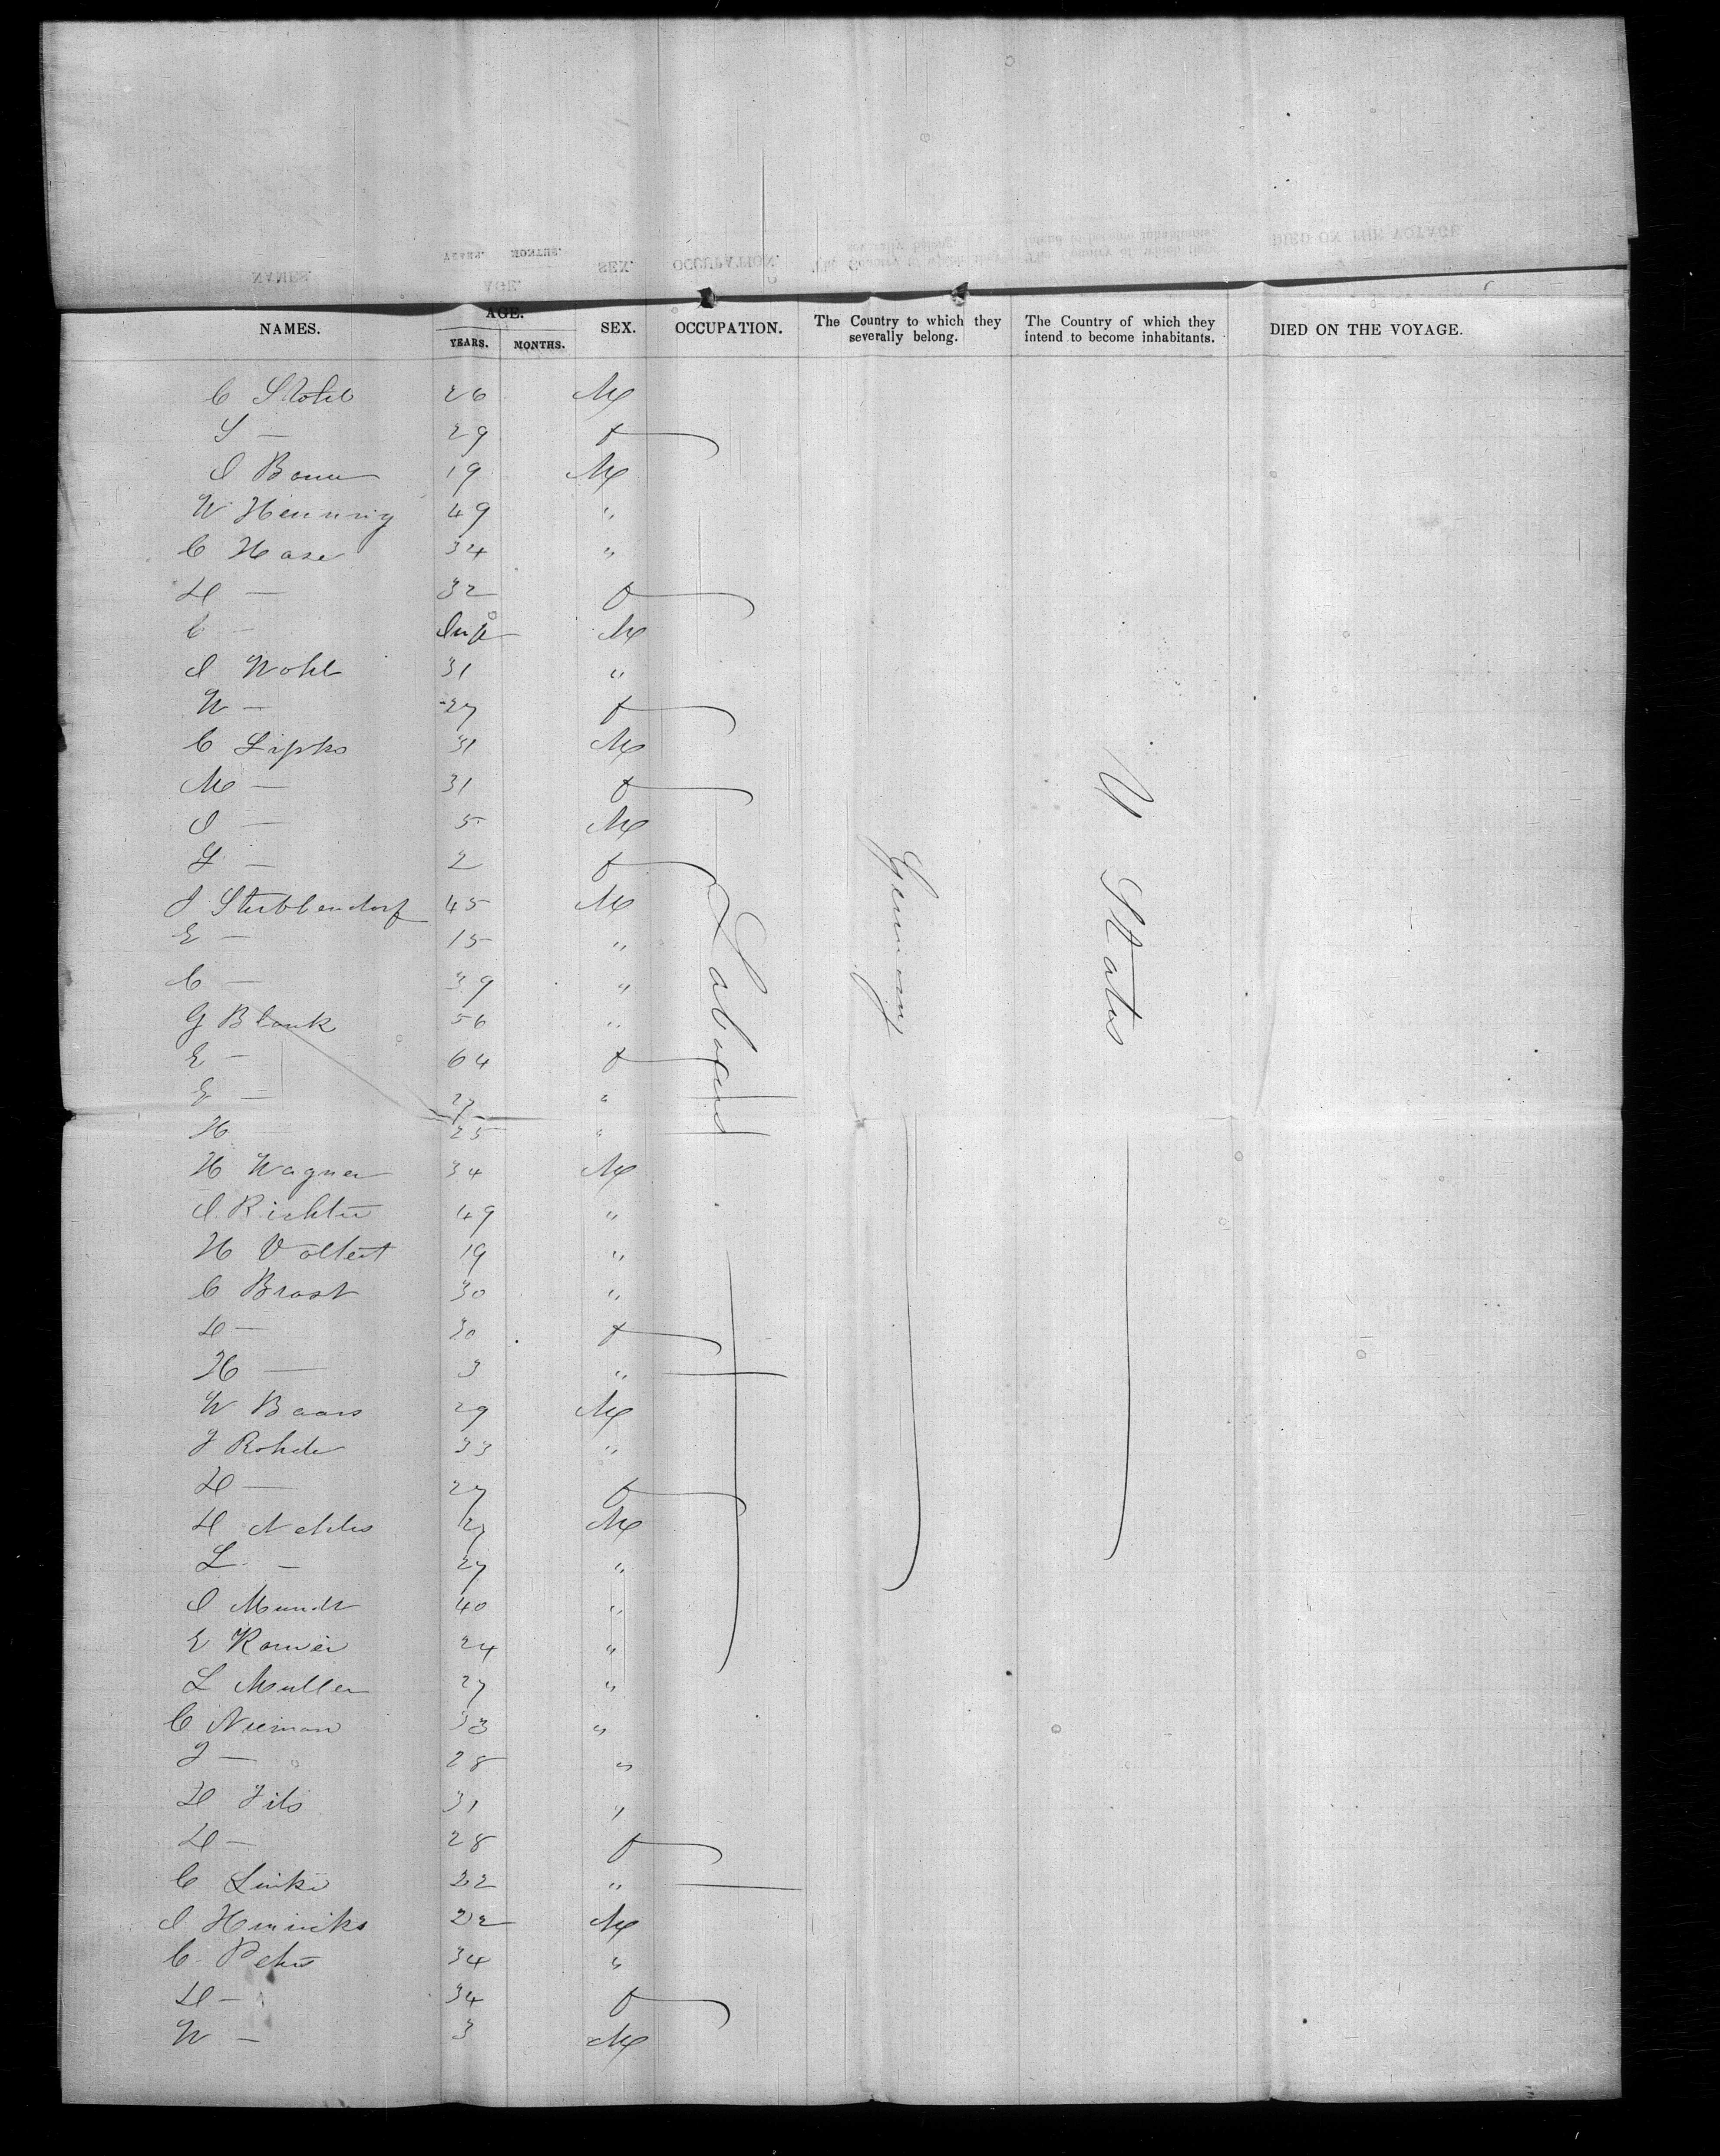 NAMES. AGE. SEX. OCCUPATION. The Country to which they severally belong. The Country of which they intend to become inhabitants. DIED ON THE VOYAGE.
YEARS. MONTHS.
C Stohl 26 M
S — 29 f
I 19 M
W Henning 49 "
C Hase 34 "
H — 32 f
C — Inft M
I Wohl 31 "
W — 27 f
C Lipks 31 M
M — 31 f
I — 5 M
G — 2 f
J Stubbendorf 45 M
E — 15 "
C — 39 "
G Blank 56 "
E — 64 f
E — 27 "
H 25 "
H Wagner 34 M
I Richter 49 "
H Voltert 19 "
C Brast 30 "
H — 30 f
H — 3 "
W Baars 29 M
J Rohde 33 "
H — 27 f
H 27 M
L — 27 "
I Mundt 40 "
E 24 "
L Muller 27 "
C Nieman 33 "
J — 28 "
H Fils 31 "
H — 28 f
C Linke 22 "
I Hinricks 22 M
C Peters 34 "
H — 34 f
W — 3 M
Laborers
Germany
U States